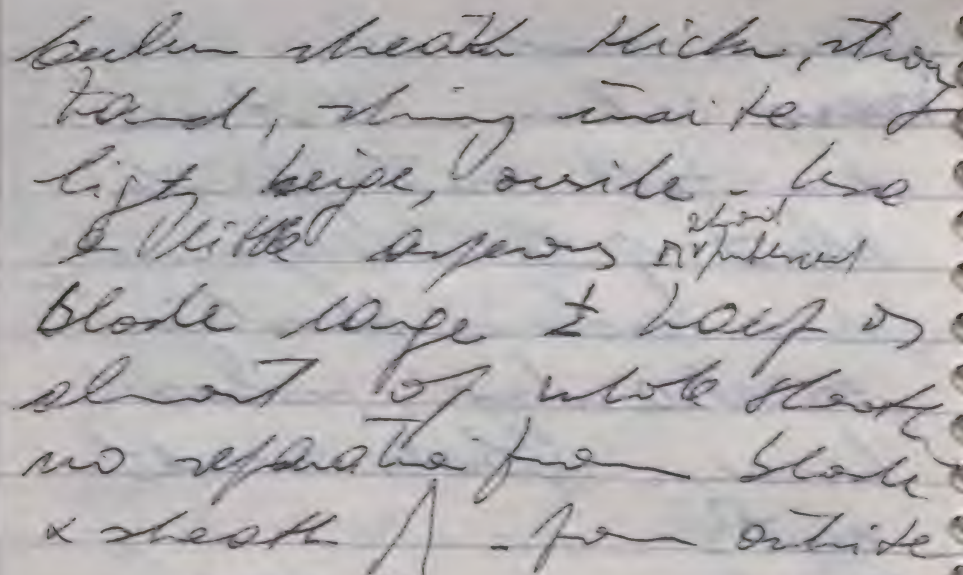 culm sheath thick, strong
tand, shiny inside &
ligt beige, ouside - base
& little
short
blade large ± half or
almost of whole sheath
no separation from blade
& sheath - from outside